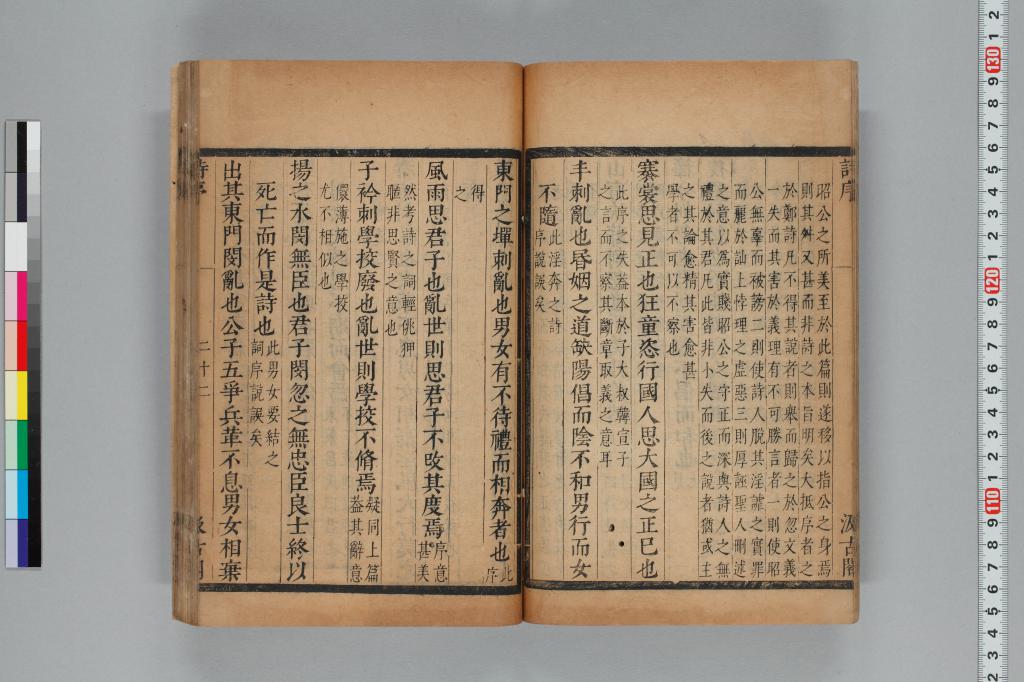 詩序
汲古閣
昭公之所美至於此篇則遂移以指公之身焉
則其舛又甚而非詩之本旨明矣大抵序者之
於鄭詩凡不得其說者則舉而歸之於忽文義
一失而其害於義理有不可勝言者一則使昭
公無辜而被謗二則使詩人脫其淫謔之實罪
而麗於訕上悖理之虛惡三則厚誣聖人刪述
之意以為實賤昭公之守正而深與詩人之無
禮於其君凡此皆非小失而後之說者猶或主
之其論愈精其害愈甚
學者不可以不察也
褰裳思見正也狂童恣行國人思大國之正已也
此序之失葢本於子大叔韓宣子
之言而不察其斷章取義之意耳
丰刺亂也昏姻之道缺陽倡而陰不和男行而女
不隨此淫奔之詩
序說誤矣
東門之墠刺亂也男女有不待禮而相奔者也此
序
得
之
風雨思君子也亂世則思君子不攺其度焉序意
甚美
然考詩之詞輕佻狎
暱非思賢之意也
子衿刺學校廢也亂世則學校不脩焉疑同上篇
葢其辭意
儇薄施之學校
尤不相似也
揚之水閔無臣也君子閔忽之無忠臣良士終以
死亡而作是詩也此男女要結之
詞序說誤矣
出其東門閔亂也公子五爭兵革不息男女相棄
詩序
二十二
汲古閣